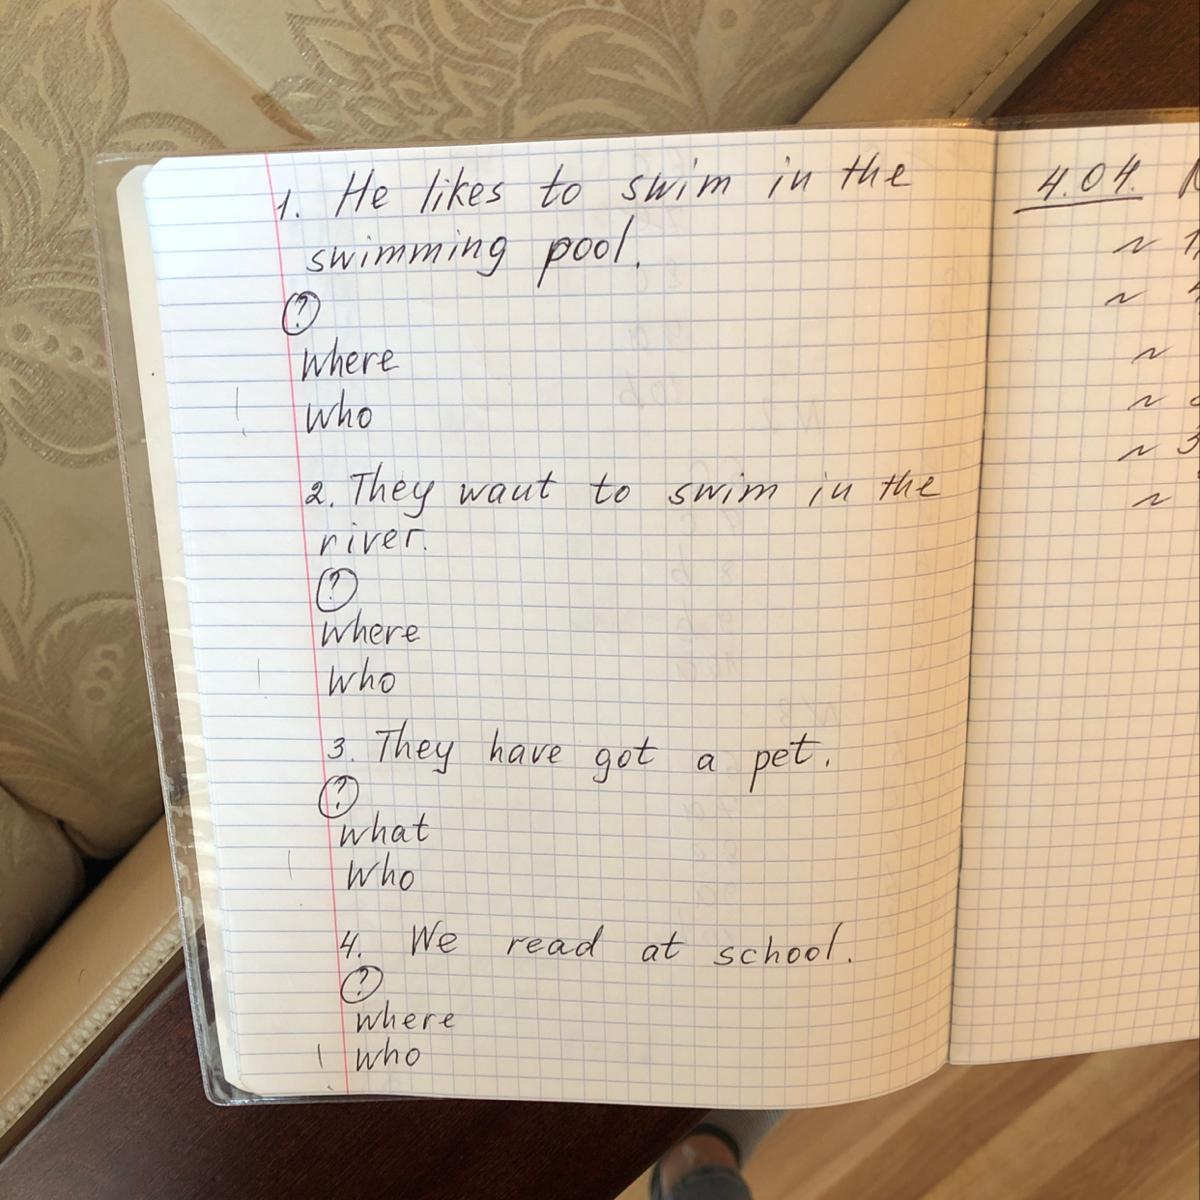 1. He likes to swim in the
swimming pool.
?
where
who
2. They want to swim in the
river.
?
where
who
3. They have got a pet.
?
what
who
4. We read at school.
?
where
who
4.04.